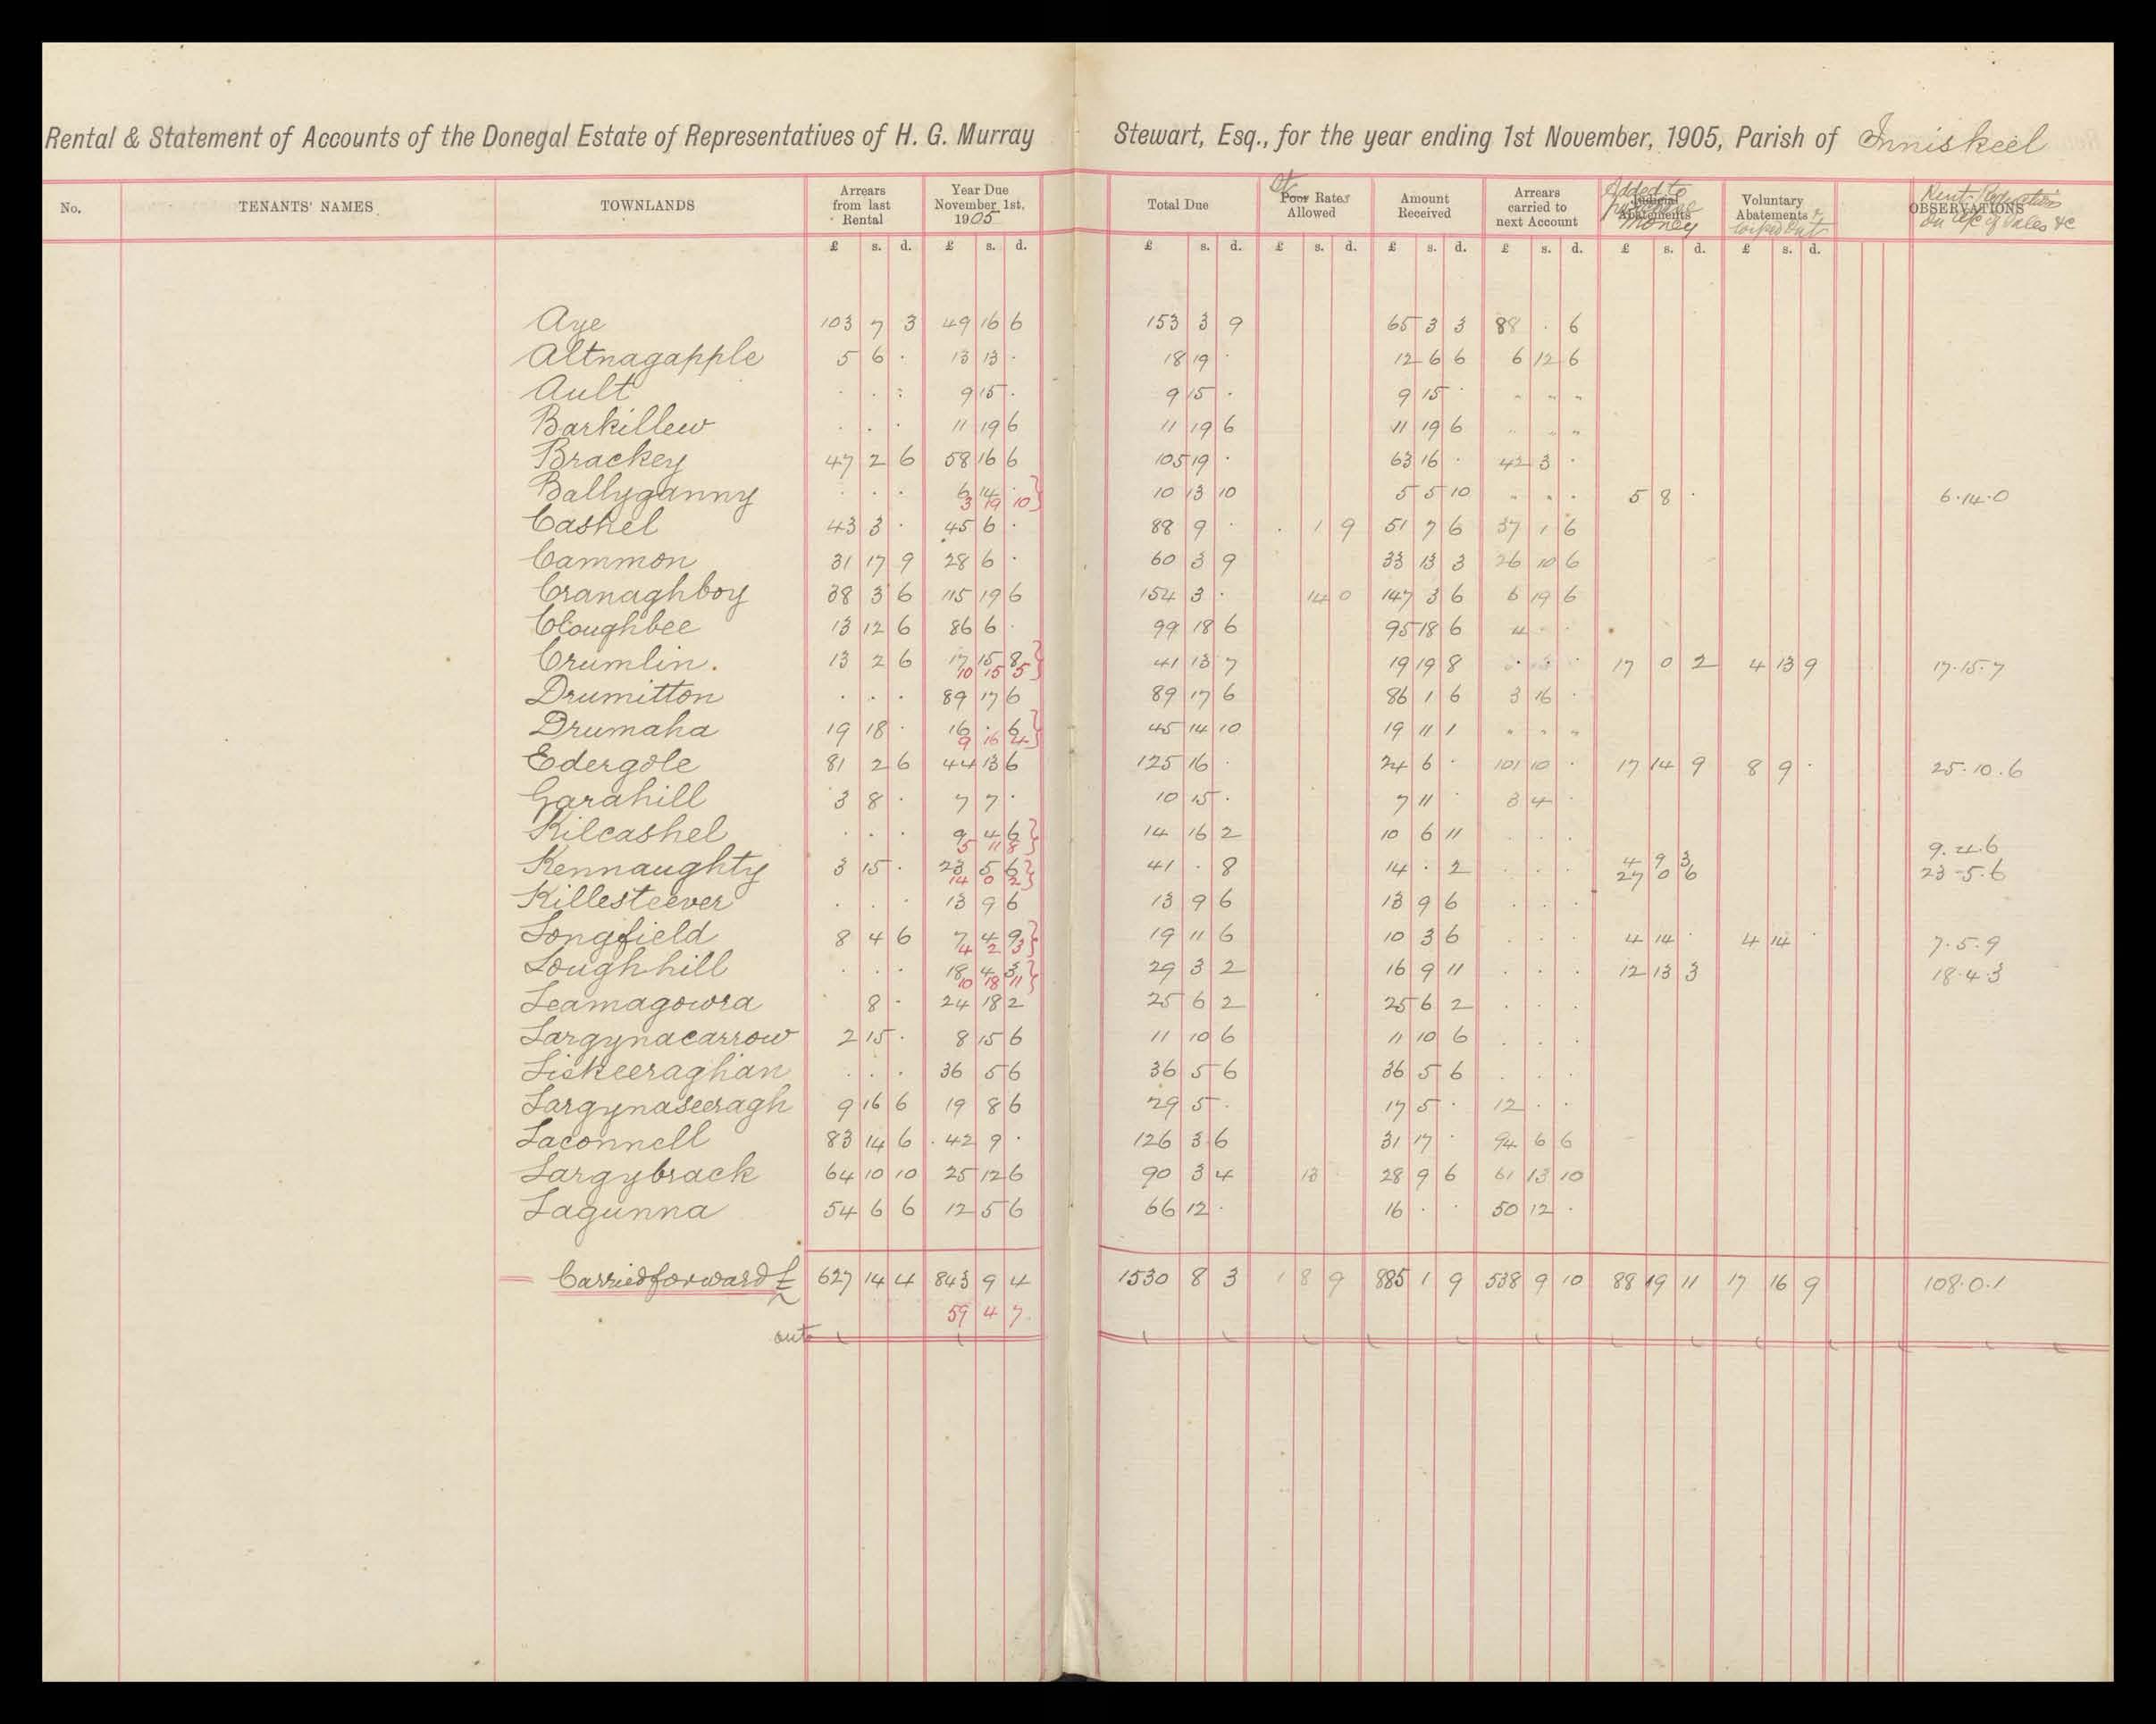 Rental & Statement of Accounts of the Donegal Estate of Representatives of H. G. Murray Stewart, Esq., for the year ending 1st November, 1905, Parish of Inniskeel
No. TENANTS' NAMES TOWNLANDS Arrears from last Rental Year Due November 1st, 1905 Total Due Poor Rates Allowed Amount Received Arrears carried to next Account Added to purchase Money Judicial Abatements Voluntary Abatements & OBSERVATIONS Rent on a/c of Sales &c
£ s. d. £ s. d. £ s. d. £ s. d. £ s. d. £ s. d. £ s. d. £ s. d.
Aye 103 7 3 49 16 6 153 3 9 65 3 3 88 . 6
Altnagapple 5 6 . 13 13 . 18 19 . 12 6 6 6 12 6
Ault . . . 9 15 . 9 15 . 9 15 . " " "
Barkillew . . . 11 19 6 11 19 6 11 19 6 " " "
Brackey 47 2 6 58 16 6 105 19 . 63 16 . 42 3 .
Ballyganny . . . 6 14 . 10 13 10 5 5 10 " " . 5 8 . 6.14.0
3 19 10
Cashel 43 3 . 45 6 . 88 9 . . 1 9 51 7 6 37 1 6
Cammon 31 17 9 28 6 . 60 3 9 33 13 3 26 10 6
Cranaghboy 38 3 6 115 19 6 154 3 . 14 0 147 3 6 6 19 6
Cloughbee 13 12 6 86 6 . 99 18 6 95 18 6 4 . .
Crumlin. 13 2 6 17 15 8 41 13 7 19 19 8 . . . 17 0 2 4 13 9 17.15.7
10 15 5
Drumitton . . . 89 17 6 89 17 6 86 1 6 3 16 .
Drumaha 19 18 . 16 . 6 45 14 10 19 11 1 " " "
9 16 4
Edergole 81 2 6 44 13 6 125 16 . 24 6 . 101 10 . 17 14 9 8 9 . 25.10.6
Garahill 3 8 . 7 7 . 10 15 . 7 11 . 3 4 .
Kilcashel . . . 9 4 6 14 16 2 10 6 11 . . . 9.4.6
5 11 8
Kennaughty 3 15 . 23 5 6 41 . 8 14 . 2 . . . 4 9 3 23-5.6
14 0 2 27 0 6
Killesteever . . . 13 9 6 13 9 6 13 9 6 . . .
Longfield 8 4 6 7 4 9 19 11 6 10 3 6 . . . 4 14 . 4 14 . 7.5.9
4 2 3
Loughhill . . . 18 4 3 29 3 2 16 9 11 . . . 12 13 3 18.4.3
10 18 11
Leamagowra 8 . 24 18 2 25 6 2 25 6 2 . . .
Largynacarrow 2 15 . 8 15 6 11 10 6 11 10 6 . . .
Liskeeraghan . . . 36 5 6 36 5 6 36 5 6 . . .
Largynaseeragh 9 16 6 19 8 6 29 5 . 17 5 . 12 . .
Laconnell 83 14 6 42 9 . 126 3 6 31 17 . 94 6 6
Largybrack 64 10 10 25 12 6 90 3 4 13 28 9 6 61 13 10
Lagunna 54 6 6 12 5 6 66 12 . 16 . . 50 12 .
Carried forward £ 627 14 4 843 9 4 1530 8 3 1 8 9 885 1 9 538 9 10 88 19 11 17 16 9 108.0.1
59 4 7